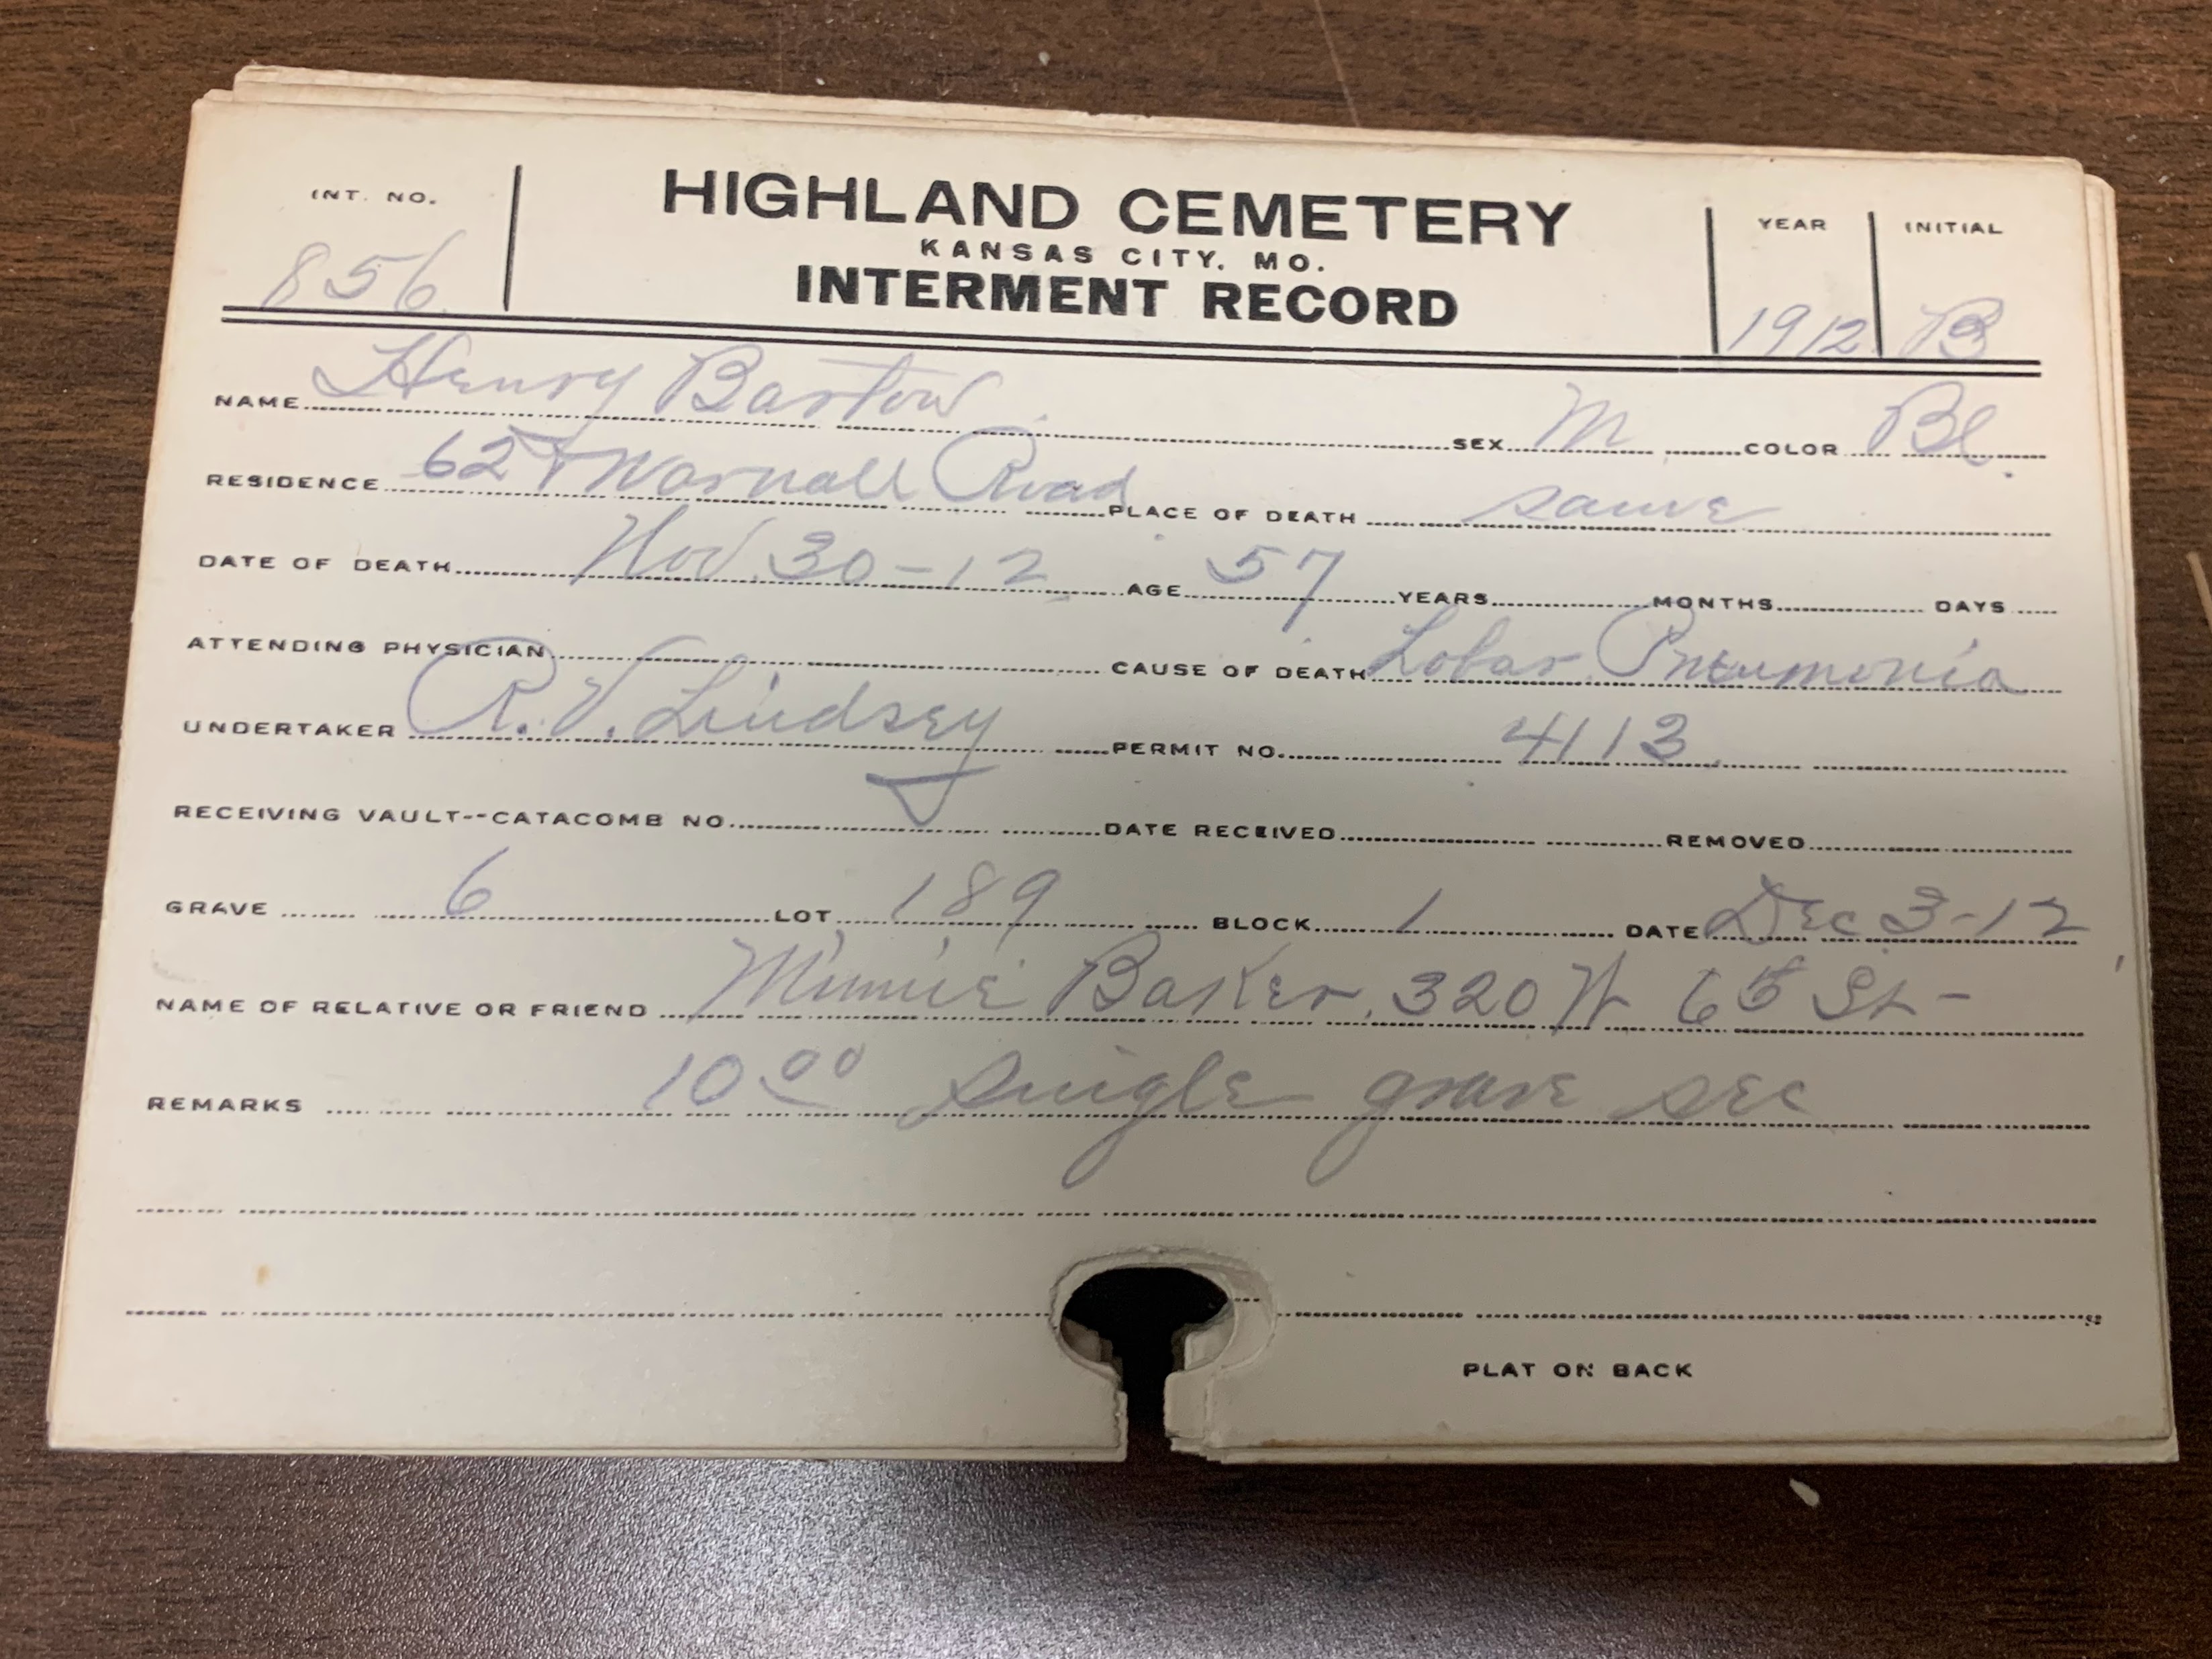 INT. NO. HIGHLAND CEMETERY YEAR INITIAL
KANSAS CITY, MO.
856 INTERMENT RECORD 1912 B
NAME Henry Bartow SEX M COLOR Bl.
RESIDENCE 62 & Wornall Road PLACE OF DEATH same
DATE OF DEATH Nov. 30-12 AGE 57 YEARS MONTHS DAYS
ATTENDING PHYSICIAN CAUSE OF DEATH Lobar Pneumonia
UNDERTAKER R.V. Lindsey PERMIT NO. 4113
RECEIVING VAULT--CATACOMB NO. DATE RECEIVED REMOVED
GRAVE 6 LOT 189 BLOCK 1 DATE Dec 3-12
NAME OF RELATIVE OR FRIEND Minnie Baker, 320 W 6th St-
REMARKS 10 00 single grave sec
PLAT ON BACK